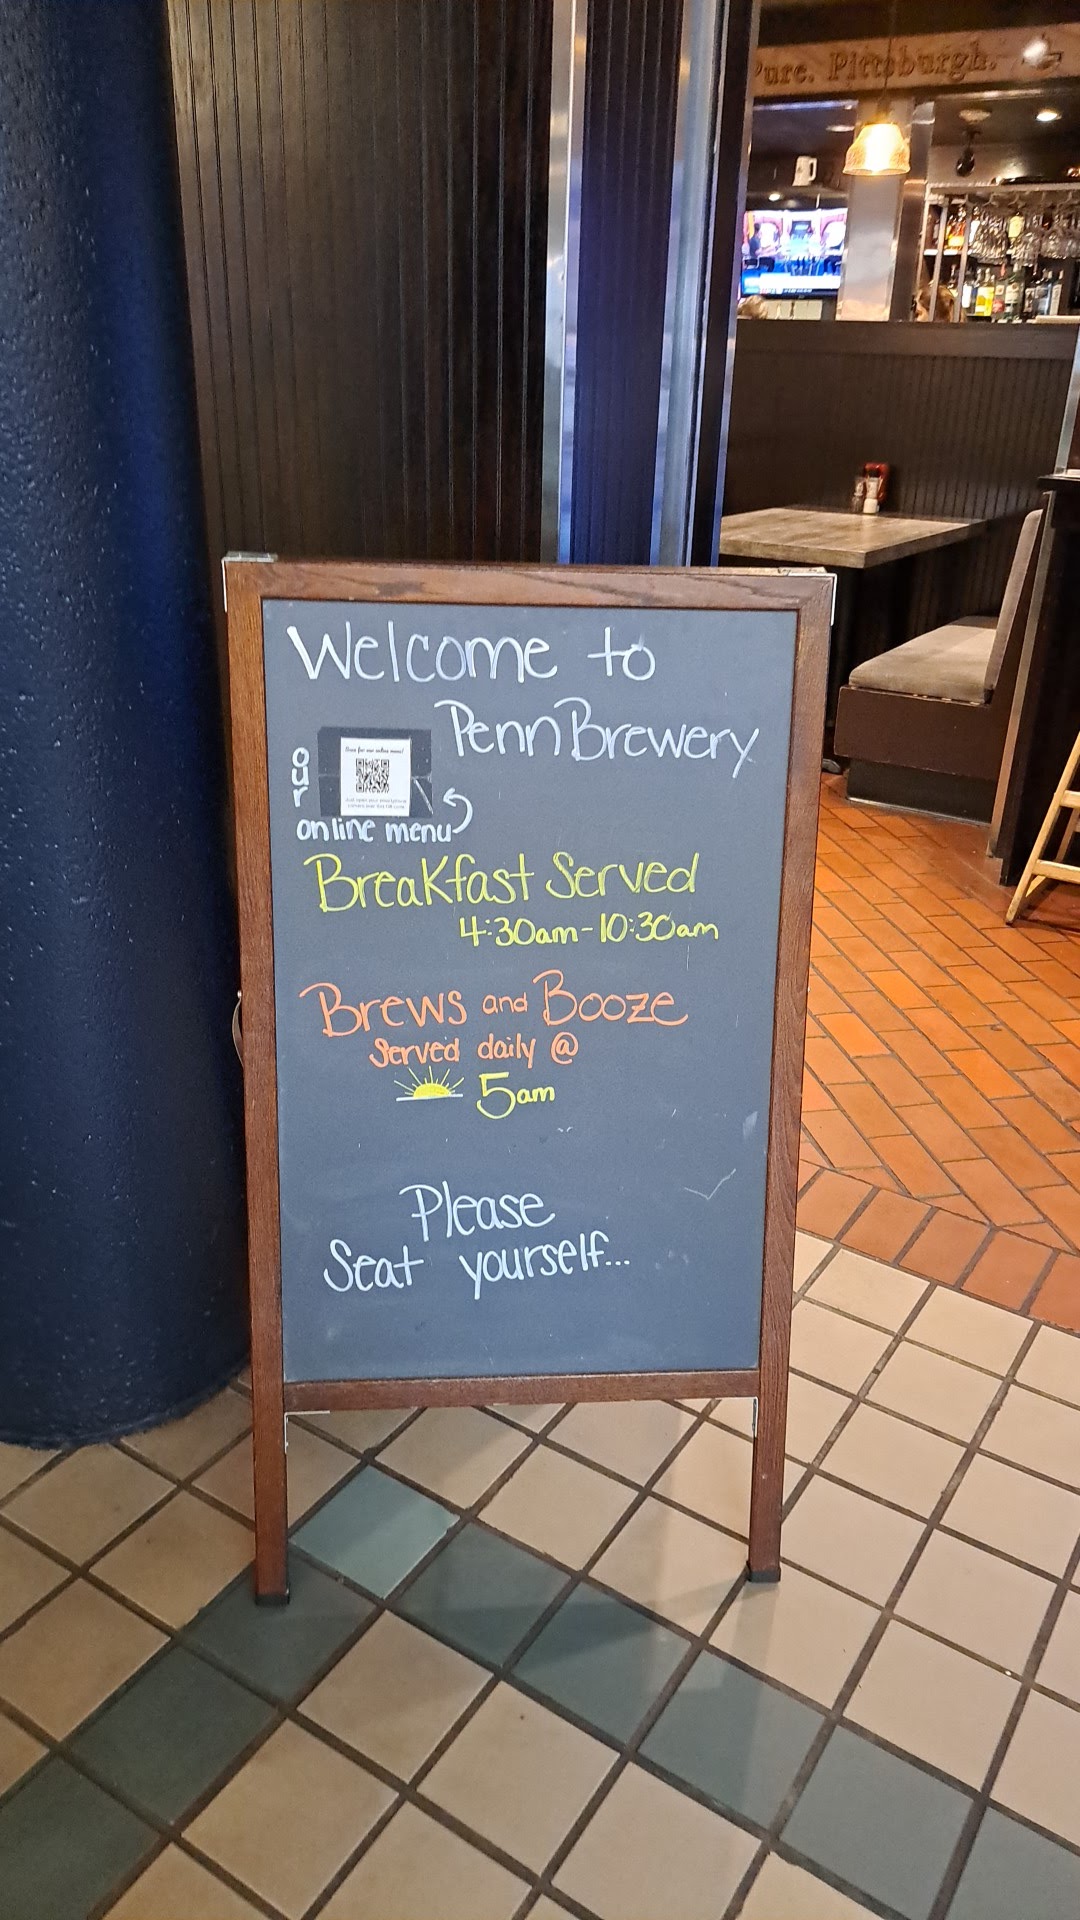 Pure. Pittsburgh.
Welcome to
Penn Brewery
our
Scan for our online menu!
online menu
Breakfast Served
4:30am-10:30am
Brews and Booze
Served daily @
5am
Please
Seat yourself...